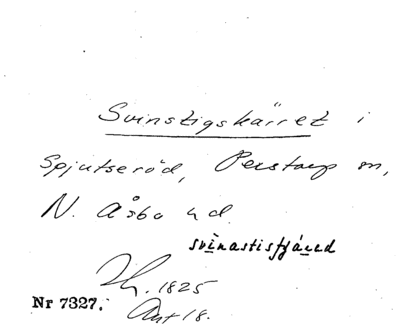 Svinstigskärret i
Spjutseröd, Perstorp sn,
N. Åsbo hd.
svinastisfjäred
Th. 1825
Nr 7327. Ant 18.